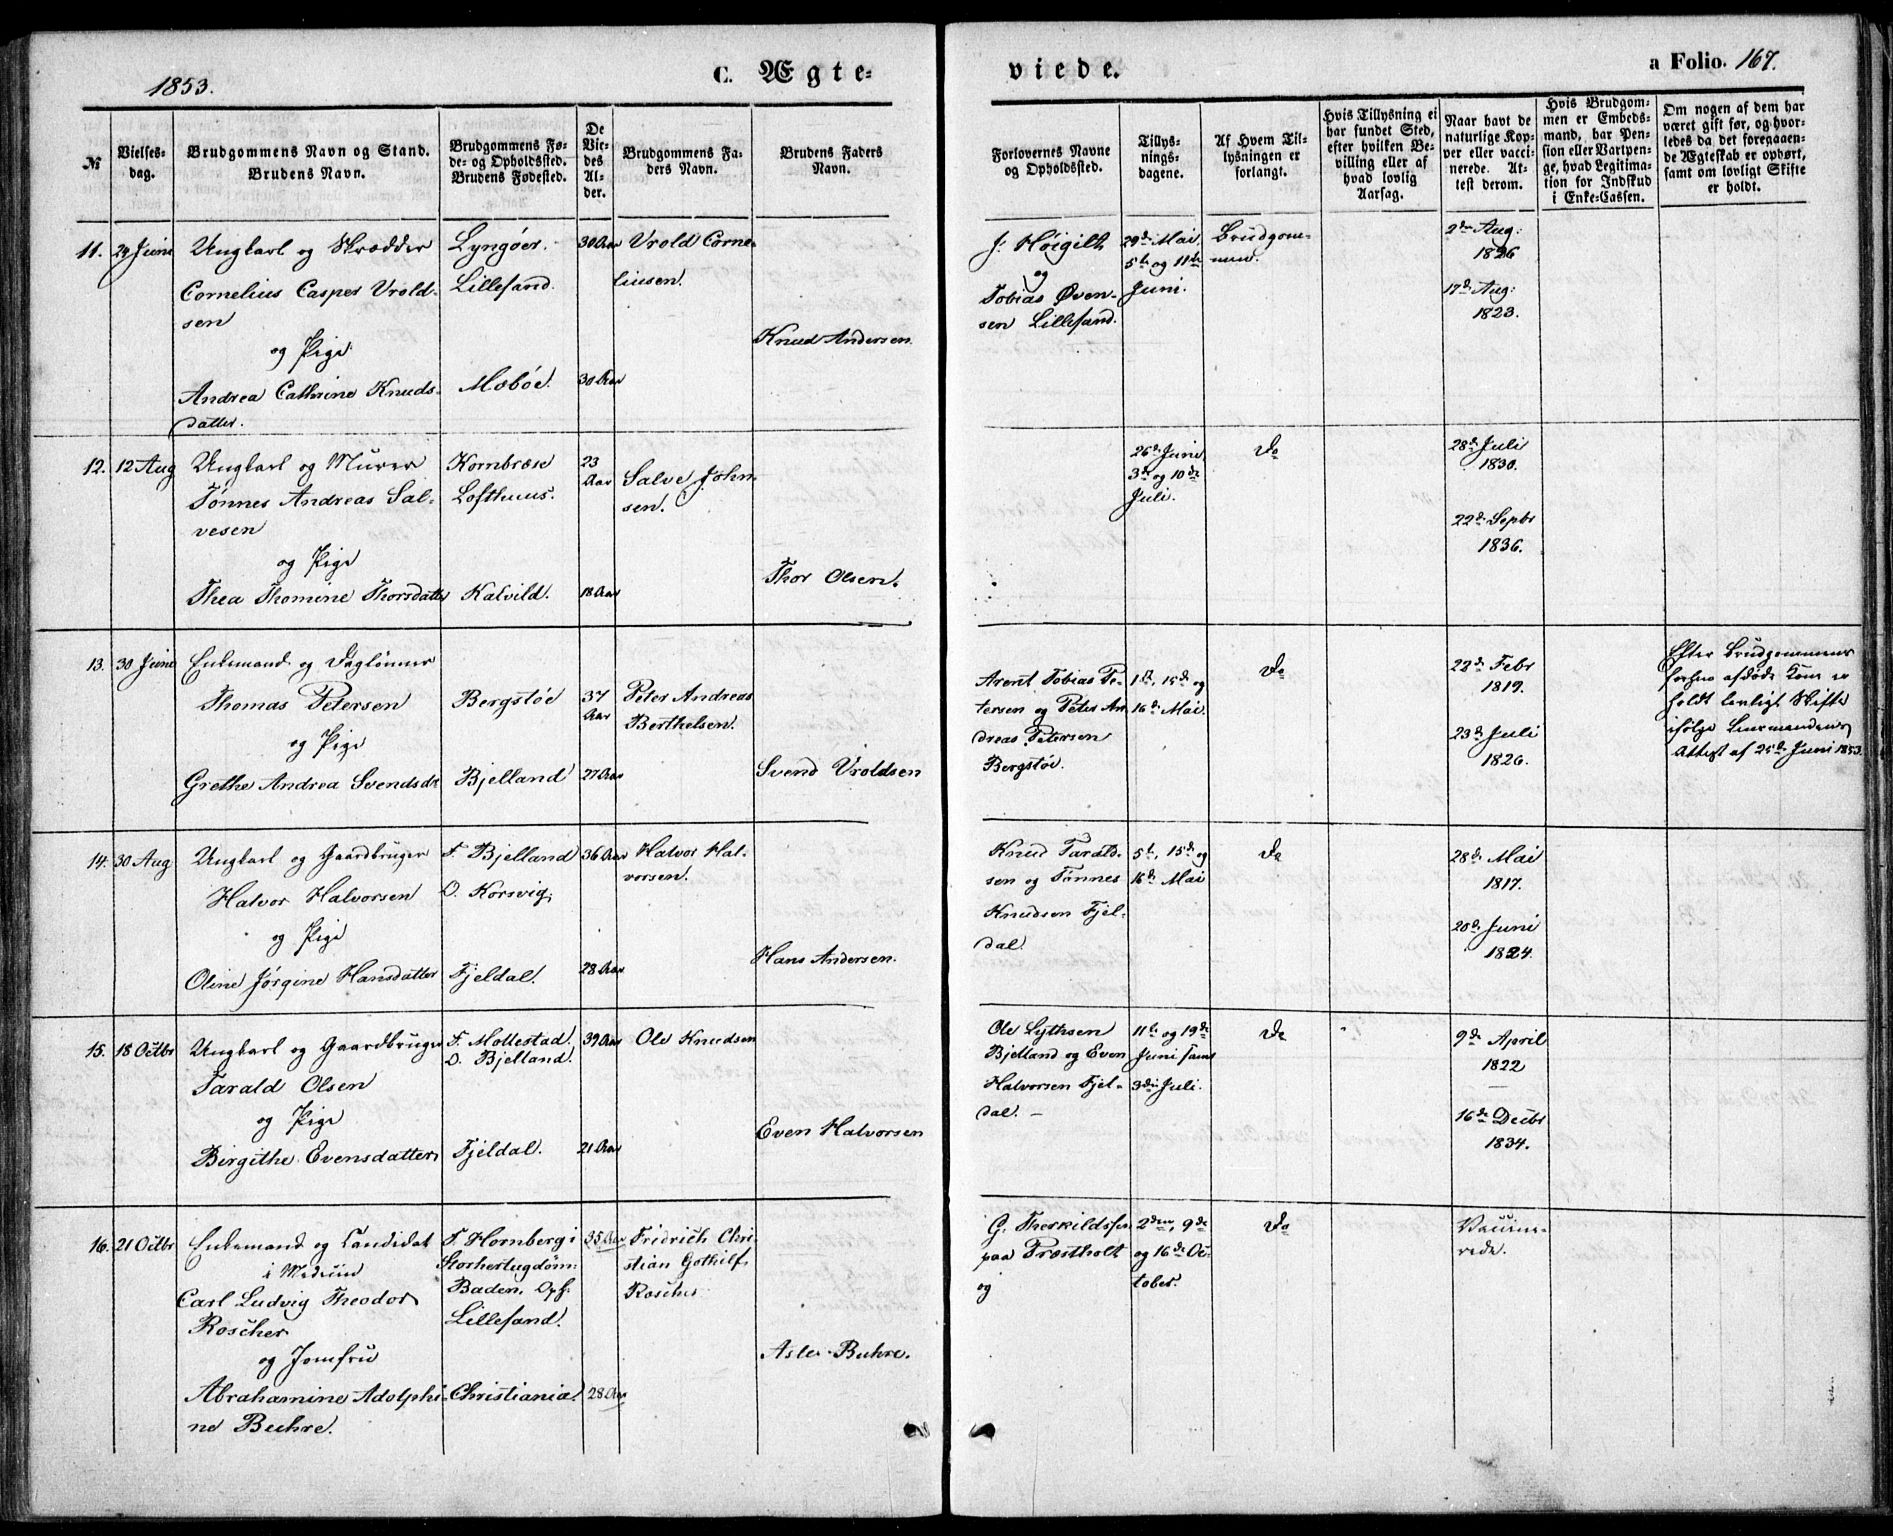 1853.
C. Ægte-
viede.
a Folio. 167.
№
Vielses-
dag.
Brudgommens Navn og Stand.
Brudens Navn.
Brudgommens Fø-
de- og Opholdssted.
Brudens Fødested.
De
Vie-
des
Al-
der.
Brudgommens Fa-
ders Navn.
Brudens Faders
Navn.
Forlovernes Navne
og Opholdssted.
Tillys-
nings-
dagene.
Af Hvem Til-
lysningen er
forlangt.
Hvis Tillysning ei
har fundet Sted,
efter hvilken Be-
villing eller af
hvad lovlig
Aarsag.
Naar havt de
naturlige Kop-
per eller vacci-
nerede. At-
test derom.
Hvis Brudgom-
men er Embeds-
mand, har Pen-
sion eller Vartpen-
ge, hvad Legitima-
tion for Indskud
i Enke-Cassen.
Om nogen af dem har
været gift før, og hvor-
ledes da det foregaaen-
de Ægteskab er ophørt,
samt om lovligt Skifte
er holdt.
11.
24 Juni
Ungkarl og Skrædder
Cornelius Casper Vrold-
sen
og Pige
Andrea Cathrine Knuds-
datter.
Lyngöer.
Lillesand.
Moböe.
30 Aar
30 Aar
Vrold Corne-
liusen.
Knud Andersen
J. Höigilt
og
Tobias Øven-
sen Lillesand.
29de Mai,
5te og 11te
Juni.
Brudgom-
men.
2den Aug:
1826
17de Aug:
1823.
12.
12 Aug
Ungkarl og Murer
Tønnes Andreas Sal-
vesen
og Pige
Thea Thomine Thorsdatter
Kornbræk
Lofthuus.
Kalvild.
23
Aar
18 Aar
Salve John-
sen.
Thor Olsen.
26de Juni
3de og 10de
Juli.
Do
28de Juli
1830.
22de Septbr
1836.
13.
30 Juni
Enkemand og Daglönner
Thomas Petersen
og Pige
Grethe Andrea Svendsdr
Bergstöe
Bjelland
37
Aar
27 Aar
Peter Andreas
Berthelsen.
Svend Vroldsen
Arent Tobias Pe-
tersen og Peter An
dreas Petersen
Bergstöe.
1ste, 15de og
16de Mai.
Do
22de Febr
1819.
23de Juli
1826.
Efter Brudgommens
forhen afdöde Kone er
holdt lovligt Skifte
ifölge Lensmandens
Attest af 25de Juni 1853.
14.
30 Aug
Ungkarl og Gaardbruger
Halvor Halvorsen
og Pige
Oline Jörgine Hansdatter
F. Bjelland
O. Korsvig.
Fjeldal.
36 Aar
28 Aar
Halvor Hal-
vorsen.
Hans Andersen.
Knud Tarald-
sen og Tønnes
Knudsen Fjel-
dal.
5te, 15de og
16de Mai
Do
28de Mai
1817.
20de Juni
1824.
15.
18 Octbr
Ungkarl og Gaardbruger
Tarald Olsen
og Pige
Birgithe Evensdatter
F. Mollestad.
O. Bjelland.
Fjeldal.
39 Aar
21 Aar
Ole Knudsen
Even Halvorsen
Ole Lythsen
Bjelland og Even
Halvorsen Fjel-
dal.
11te og 19de
Juni samt
3die Juli.
Do
9de April
1822
16de Decbr
1834.
16.
21 Octbr
Enkemand og Candidat
i Medecin
Carl Ludvig Theodor
Roscher
og Jomfru
Abrahamine Adolphi-
ne Buhre.
F. Hornberg i
Storhertugdöm-
Baden, Oph.
Lillesand.
Christiania.
35 Aar
28 Aar
Fridrich Chri
stian Gothilf
Roscher
Asle Buhre.
G. Therkildsen
paa Præstholt
og
2den, 9de
og 16de Oc-
tober.
Do
Vaccine-
rede.